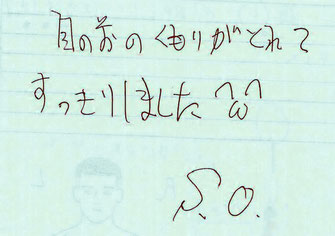 目の前のくもりがとれて
すっきりしました ^ω^
S. O.